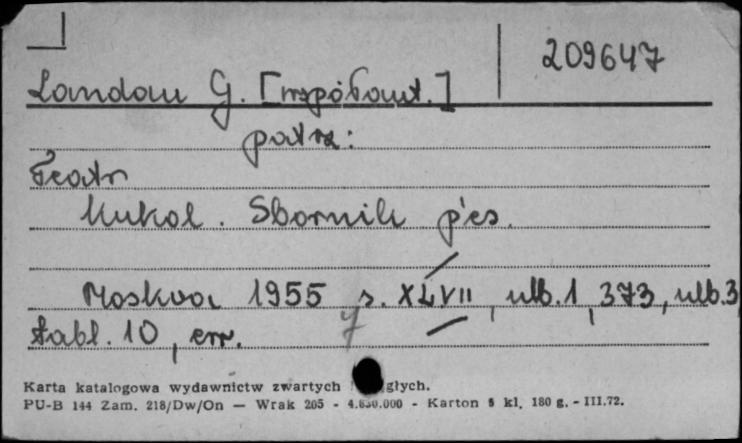 209647
Landau G. [współaut.]
patrz:
Teatr
Kukol. Sbornik p'es.
Moskva 1955 s. XLVII, ulb. 1, 373, ulb. 3
tabl. 10, err.
Karta katalogowa wydawnictw zwartych głych.
PU-B 144 Zam. 218/Dw/On — Wrak 205 - 4.850.000 - Karton 5 kl. 180 g. - III.72.